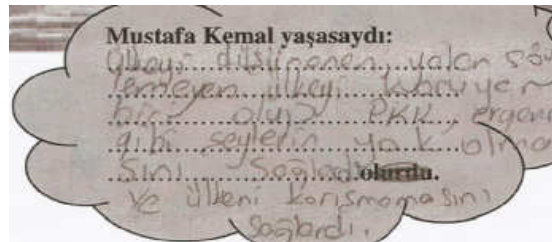 Mustafa Kemal yaşasaydı:
ülkeyi düşünenen, yalan söy
lemeyen ülkeyi koruyan
biri olup PKK, ergene
gibi şeylerin yok olma
sını sağladı olurdu.
ve ülkeni karışmamasını
sağlardı.